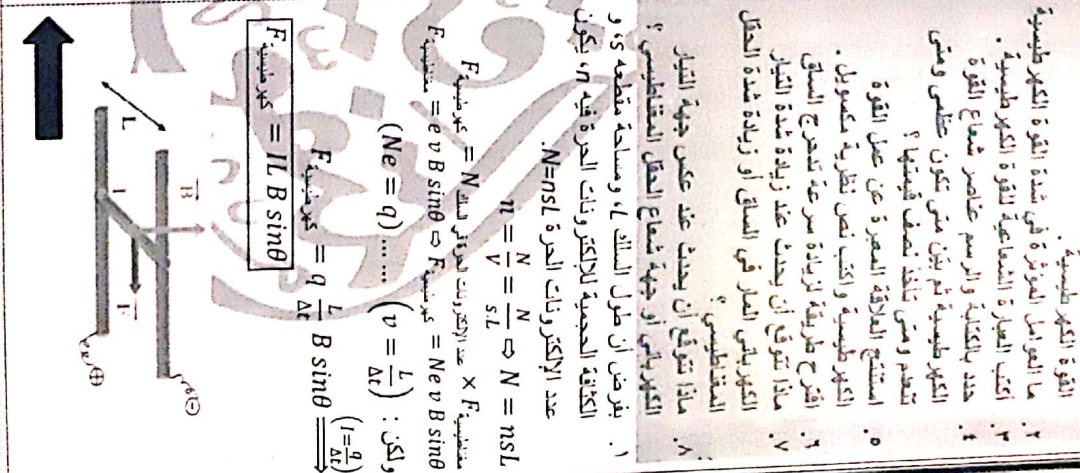 القوة الكهرطيسية.
٢. ما العوامل المؤثرة في شدة القوة الكهرطيسية
٣. أكتب العبارة الشعاعية للقوة الكهرطيسية.
٤. حدد بالكتابة والرسم عناصر شعاع القوة
الكهرطيسية ثم بيّن متى تكون عظمى ومتى
تنعدم ومتى تأخذ نصف قيمتها؟
٥. استنتج العلاقة المعبرة عن عمل القوة
الكهرطيسية واكتب نص نظرية مكسويل.
٦. اقترح طريقة لزيادة سرعة تدحرج الساق
٧. ماذا تتوقع أن يحدث عند زيادة شدة التيار
الكهربائي المار في الساق أو زيادة شدة الحقل
المغناطيسي؟
٨. ماذا تتوقع أن يحدث عند عكس جهة التيار
الكهربائي أو جهة شعاع الحقل المغناطيسي؟
١. بفرض أن طول السلك L، ومساحة مقطعه s، و
الكثافة الحجمية للإلكترونات الحرة فيه n، يكون
عدد الإلكترونات الحرة N=nsL.
n = N/V = N/sL ⇒ N = nsL
F كهرطيسية = N عدد الإلكترونات الحرة في السلك × F مغناطيسية
F مغناطيسية = e v B sinθ ⇒ F كهرطيسية = Ne v B sinθ
ولكن : (v = L/Δt) ...... (Ne = q)
F كهرطيسية = q L/Δt B sinθ ⟹ (I=q/Δt)
F كهرطيسية = IL B sinθ
B
L
I
F
⊖
⊕